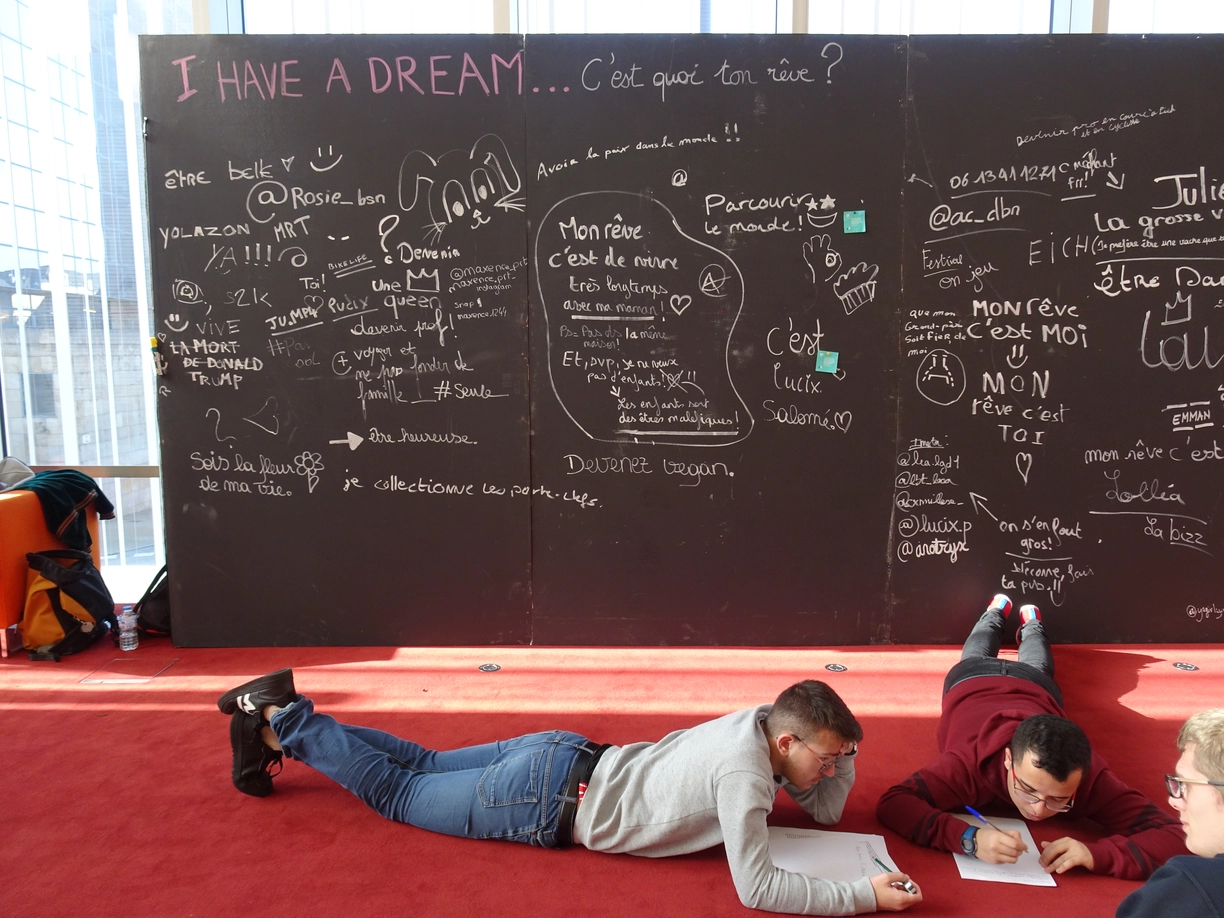 I HAVE A DREAM... C'est quoi ton rêve ?
être belle
@Rosie_bsn
YOLAZON MRT
YA !!!
?
Devenir
une
queen
Toi!
BIKELIFE
@maxence_prt_
maxence_prt_
instagram
snap
maxence1244
S21K
VIVE
LA MORT
DE DONALD
TRUMP
devenir prof!
#Pas
voyager et
ne pas fonder de
famille #Seule
être heureuse.
Sois la fleur
de ma vie.
je collectionne les porte-clefs.
Avoir la paix dans le monde !!
Mon rêve
c'est de vivre
très longtemps
avec ma maman!
Ps= Pas ds la même
maison!
Et, pvp, je ne veux
pas d'enfants! !!
Les enfants sont
des êtres maléfiques!
Devenez vegan.
@
Parcourir
le monde!
A
c'est
lucix.
Salomé.
Devenir pro en course à pied
et en cyclisme
c méchant
frr!
@ac_dbn
Festival
on jeu
que mon
Grand-père
soit FIER de
moi
MON RÊVE
C'EST MOI
MON
rêve c'est
TOI
Insta:
@lucix.p
@anotryx
on s'en fout
gros!
déconne, fais
ta pub!!
Julie
la grosse v
EiCH (Je préfère être une vache que
être Da
Lou
EMMAN
mon rêve c'est
Lolléa
La bizz